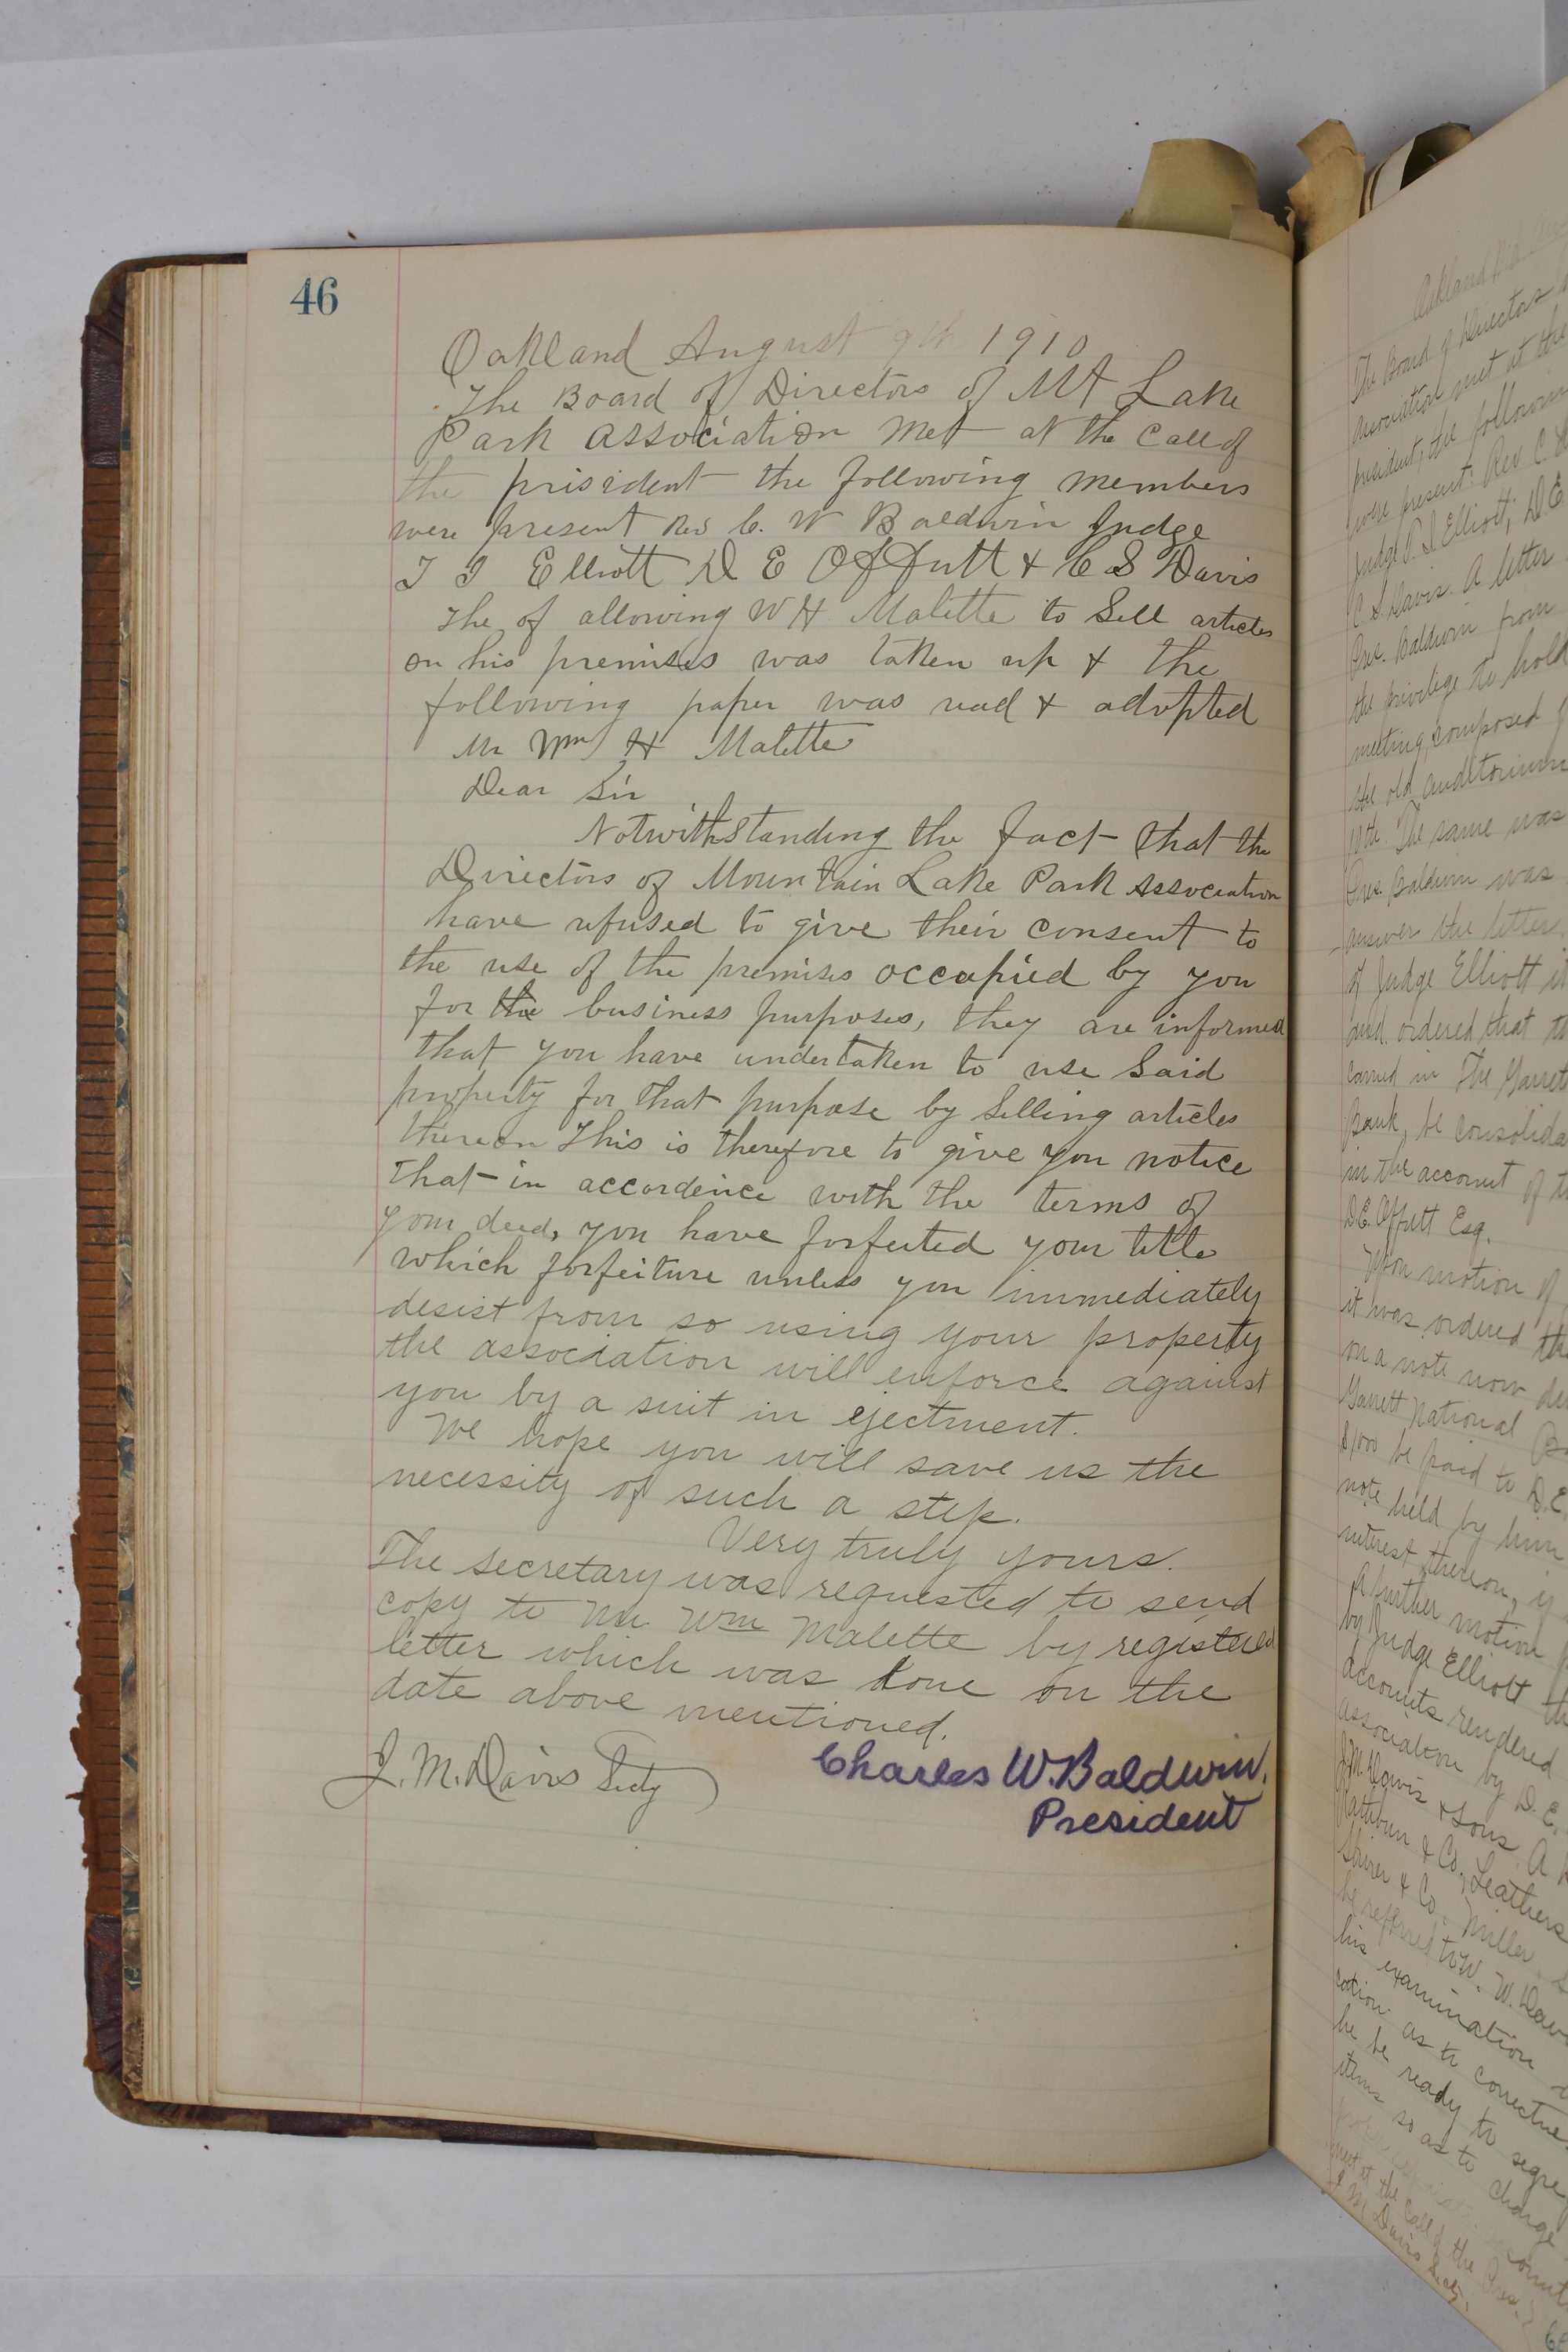 46
Oakland August 9th 1910
The Board of Directors of Mt Lake
Park Association met at the call of
the prisident the following members
were present Rev C. W Baldwin Judge
T J Elliott D E Offutt & C S Davis
The of allowing W H Malette to Sell articles
on his premises was taken up & the
following paper was read & adopted
Mr Wm H Malette
Dear Sir
Notwithstanding the fact that the
Directors of Mountain Lake Park Association
have refused to give their consent to
the use of the premises occupied by you
for the business purposes, they are informed
that you have undertaken to use Said
property for that purpose by Selling articles
thereon This is therefore to give you notice
that in accordence with the terms of
your deed, you have forfeited your title
which forfeiture unless you immediately
desist from so using your property
the association will enforce against
you by a suit in ejectment.
We hope you will save us the
necessity of such a step.
Very truly yours.
The secretary was requested to send
copy to Mr Wm Malette by registered
letter which was done on the
date above mentioned.
J. M. Davis Secty
Charles W. Baldwin.
President
Oakland
The Board of Directors
Association met at the
president, the following
were present: Rev. C.
Judge T. J. Elliott, D.E.
C. S. Davis. A letter
Pres. Baldwin from
the privilege to hold
meeting, composed
the old auditorium
10th. The same was
Pres. Baldwin was
answer the letter.
of Judge Elliott it
and ordered that
carried in The Garrett
Bank, be consolida
in the account of
D.E. Offutt Esq.
Upon motion of
it was ordered
on a note now
Garrett National
be paid to D.E.
note held by him
interest thereon,
A further motion
by Judge Elliott
accounts rendered
association by D.E.
J.M. Davis & Sons. A
Rathbun & Co, Leathers
& Co. Miller
be referred to W. W.
his examination
cation as to
he be ready to
items so as to charge
met at the call of the Pres.
J M Davis Secty.